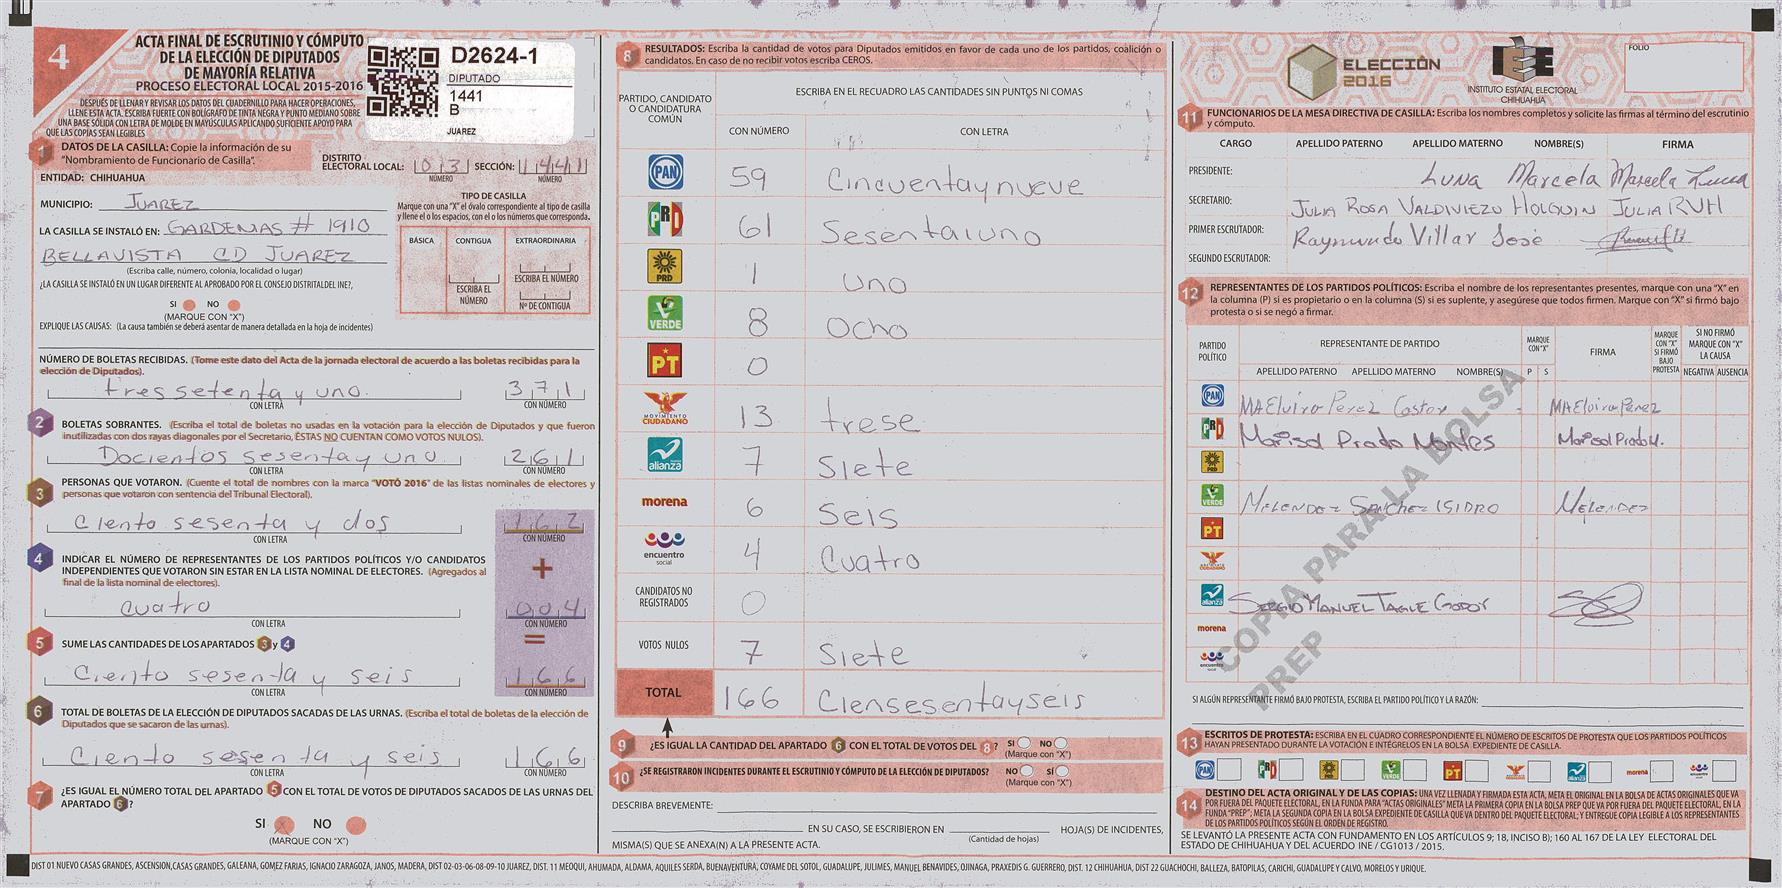 4
ACTA FINAL DE ESCRUTINIO Y CÓMPUTO
DE LA ELECCIÓN DE DIPUTADOS
DE MAYORÍA RELATIVA
PROCESO ELECTORAL LOCAL 2015-2016
DESPUÉS DE LLENAR Y REVISAR LOS DATOS DEL CUADERNILLO PARA HACER OPERACIONES,
LLENE ESTA ACTA. ESCRIBA FUERTE CON BOLÍGRAFO DE TINTA NEGRA Y PUNTO MEDIANO SOBRE
UNA BASE SÓLIDA CON LETRA DE MOLDE EN MAYÚSCULAS APLICANDO SUFICIENTE APOYO PARA
QUE LAS COPIAS SEAN LEGIBLES
D2624-1
DIPUTADO
1441
B
JUAREZ
1 DATOS DE LA CASILLA: Copie la información de su
"Nombramiento de Funcionario de Casilla".
DISTRITO
ELECTORAL LOCAL: 03 SECCIÓN: 1441
NÚMERO NÚMERO
ENTIDAD: CHIHUAHUA
MUNICIPIO: JUAREZ
LA CASILLA SE INSTALÓ EN: GARDENIAS # 1910
BELLAVISTA CD JUAREZ
(Escriba calle, número, colonia, localidad o lugar)
¿LA CASILLA SE INSTALÓ EN UN LUGAR DIFERENTE AL APROBADO POR EL CONSEJO DISTRITAL DEL INE?,
SI NO
(MARQUE CON "X")
EXPLIQUE LAS CAUSAS: (La causa también se deberá asentar de manera detallada en la hoja de incidentes)
TIPO DE CASILLA
Marque con una "X" el óvalo correspondiente al tipo de casilla
y llene el o los espacios, con el o los números que corresponda.
BÁSICA CONTIGUA EXTRAORDINARIA
ESCRIBA EL NÚMERO ESCRIBA EL NÚMERO
Nº DE CONTIGUA
NÚMERO DE BOLETAS RECIBIDAS. (Tome este dato del Acta de la jornada electoral de acuerdo a las boletas recibidas para la
elección de Diputados).
tres setenta y uno 371
CON LETRA CON NÚMERO
2 BOLETAS SOBRANTES. (Escriba el total de boletas no usadas en la votación para la elección de Diputados y que fueron
inutilizadas con dos rayas diagonales por el Secretario, ÉSTAS NO CUENTAN COMO VOTOS NULOS).
Docientos sesenta y uno 261
CON LETRA CON NÚMERO
3 PERSONAS QUE VOTARON. (Cuente el total de nombres con la marca "VOTÓ 2016" de las listas nominales de electores y
personas que votaron con sentencia del Tribunal Electoral).
Ciento sesenta y dos 162
CON LETRA CON NÚMERO
4 INDICAR EL NÚMERO DE REPRESENTANTES DE LOS PARTIDOS POLÍTICOS Y/O CANDIDATOS
INDEPENDIENTES QUE VOTARON SIN ESTAR EN LA LISTA NOMINAL DE ELECTORES. (Agregados al
final de la lista nominal de electores).
+
cuatro 004
CON LETRA CON NÚMERO
5 SUME LAS CANTIDADES DE LOS APARTADOS 3 y 4
=
Ciento sesenta y seis 166
CON LETRA CON NÚMERO
6 TOTAL DE BOLETAS DE LA ELECCIÓN DE DIPUTADOS SACADAS DE LAS URNAS. (Escriba el total de boletas de la elección de
Diputados que se sacaron de las urnas).
Ciento sesenta y seis 166
CON LETRA CON NÚMERO
7 ¿ES IGUAL EL NÚMERO TOTAL DEL APARTADO 5 CON EL TOTAL DE VOTOS DE DIPUTADOS SACADOS DE LAS URNAS DEL
APARTADO 6?
SI X NO
(MARQUE CON "X")
8 RESULTADOS: Escriba la cantidad de votos para Diputados emitidos en favor de cada uno de los partidos, coalición o
candidatos. En caso de no recibir votos escriba CEROS.
PARTIDO, CANDIDATO
O CANDIDATURA
COMÚN
ESCRIBA EN EL RECUADRO LAS CANTIDADES SIN PUNTOS NI COMAS
CON NÚMERO CON LETRA
PAN 59 Cincuentaynueve
PRI 61 Sesentaiuno
PRD 1 uno
VERDE 8 Ocho
PT 0
MOVIMIENTO CIUDADANO 13 trese
alianza 7 Siete
morena 6 Seis
encuentro social 4 Cuatro
CANDIDATOS NO REGISTRADOS 0
VOTOS NULOS 7 Siete
TOTAL 166 Ciensesentayseis
9 ¿ES IGUAL LA CANTIDAD DEL APARTADO 6 CON EL TOTAL DE VOTOS DEL 8? SI NO
(Marque con "X")
10 ¿SE REGISTRARON INCIDENTES DURANTE EL ESCRUTINIO Y CÓMPUTO DE LA ELECCIÓN DE DIPUTADOS? NO SÍ
(Marque con "X")
DESCRIBA BREVEMENTE:
EN SU CASO, SE ESCRIBIERON EN HOJA(S) DE INCIDENTES,
(Cantidad de hojas)
MISMA(S) QUE SE ANEXA(N) A LA PRESENTE ACTA.
ELECCIÓN
2016
IEE
INSTITUTO ESTATAL ELECTORAL
CHIHUAHUA
FOLIO
11 FUNCIONARIOS DE LA MESA DIRECTIVA DE CASILLA: Escriba los nombres completos y solicite las firmas al término del escrutinio
y cómputo.
CARGO APELLIDO PATERNO APELLIDO MATERNO NOMBRE(S) FIRMA
PRESIDENTE: LUNA Marcela Marcela Luna
SECRETARIO: JULIA ROSA VALDIVIEZO HOLGUIN JULIA RVH
PRIMER ESCRUTADOR: Raymundo Villar José
SEGUNDO ESCRUTADOR:
12 REPRESENTANTES DE LOS PARTIDOS POLÍTICOS: Escriba el nombre de los representantes presentes, marque con una "X" en
la columna (P) si es propietario o en la columna (S) si es suplente, y asegúrese que todos firmen. Marque con "X" si firmó bajo
protesta o si se negó a firmar.
PARTIDO POLÍTICO
REPRESENTANTE DE PARTIDO
MARQUE CON "X"
FIRMA
MARQUE CON "X" SI FIRMÓ BAJO PROTESTA
SI NO FIRMÓ MARQUE CON "X" LA CAUSA
APELLIDO PATERNO APELLIDO MATERNO NOMBRE(S) P S NEGATIVA AUSENCIA
PAN MA Elvira Perez Castor MA Elvira Perez
PRI Marisol Prado Montes Marisol Prado M.
PRD
VERDE MELENDEZ SANCHEZ ISIDRO MELENDEZ
PT
alianza SERGIO MANUEL TAGLE GODOY
morena
COPIA PARA LA BOLSA
PREP
SI ALGÚN REPRESENTANTE FIRMÓ BAJO PROTESTA, ESCRIBA EL PARTIDO POLÍTICO Y LA RAZÓN:
13 ESCRITOS DE PROTESTA: ESCRIBA EN EL CUADRO CORRESPONDIENTE EL NÚMERO DE ESCRITOS DE PROTESTA QUE LOS PARTIDOS POLÍTICOS
HAYAN PRESENTADO DURANTE LA VOTACIÓN E INTÉGRELOS EN LA BOLSA EXPEDIENTE DE CASILLA.
PAN PRI PRD VERDE PT alianza morena
14 DESTINO DEL ACTA ORIGINAL Y DE LAS COPIAS: UNA VEZ LLENADA Y FIRMADA ESTA ACTA, META EL ORIGINAL EN LA BOLSA DE ACTAS ORIGINALES QUE VA
POR FUERA DEL PAQUETE ELECTORAL, EN LA FUNDA PARA "ACTAS ORIGINALES" META LA PRIMERA COPIA EN LA BOLSA PREP QUE VA POR FUERA DEL PAQUETE ELECTORAL, EN LA
FUNDA "PREP"; META LA SEGUNDA COPIA EN LA BOLSA EXPEDIENTE DE CASILLA QUE VA DENTRO DEL PAQUETE ELECTORAL; Y ENTREGUE COPIA LEGIBLE A LOS REPRESENTANTES
DE LOS PARTIDOS POLÍTICOS SEGÚN EL ORDEN DE REGISTRO.
SE LEVANTÓ LA PRESENTE ACTA CON FUNDAMENTO EN LOS ARTÍCULOS 9; 18, INCISO B); 160 AL 167 DE LA LEY ELECTORAL DEL
ESTADO DE CHIHUAHUA Y DEL ACUERDO INE / CG1013 / 2015.
DIST 01 NUEVO CASAS GRANDES, ASCENSION,CASAS GRANDES, GALEANA, GOMEZ FARIAS, IGNACIO ZARAGOZA, JANOS, MADERA, DIST 02-03-06-08-09-10 JUAREZ, DIST. 11 MEOQUI, AHUMADA, ALDAMA, AQUILES SERDA, BUENAVENTURA, COYAME DEL SOTOL, GUADALUPE, JULIMES, MANUEL BENAVIDES, OJINAGA, PRAXEDIS G. GUERRERO, DIST. 12 CHIHUAHUA, DIST 22 GUACHOCHI, BALLEZA, BATOPILAS, CARICHI, GUADALUPE Y CALVO, MORELOS Y URIQUE.